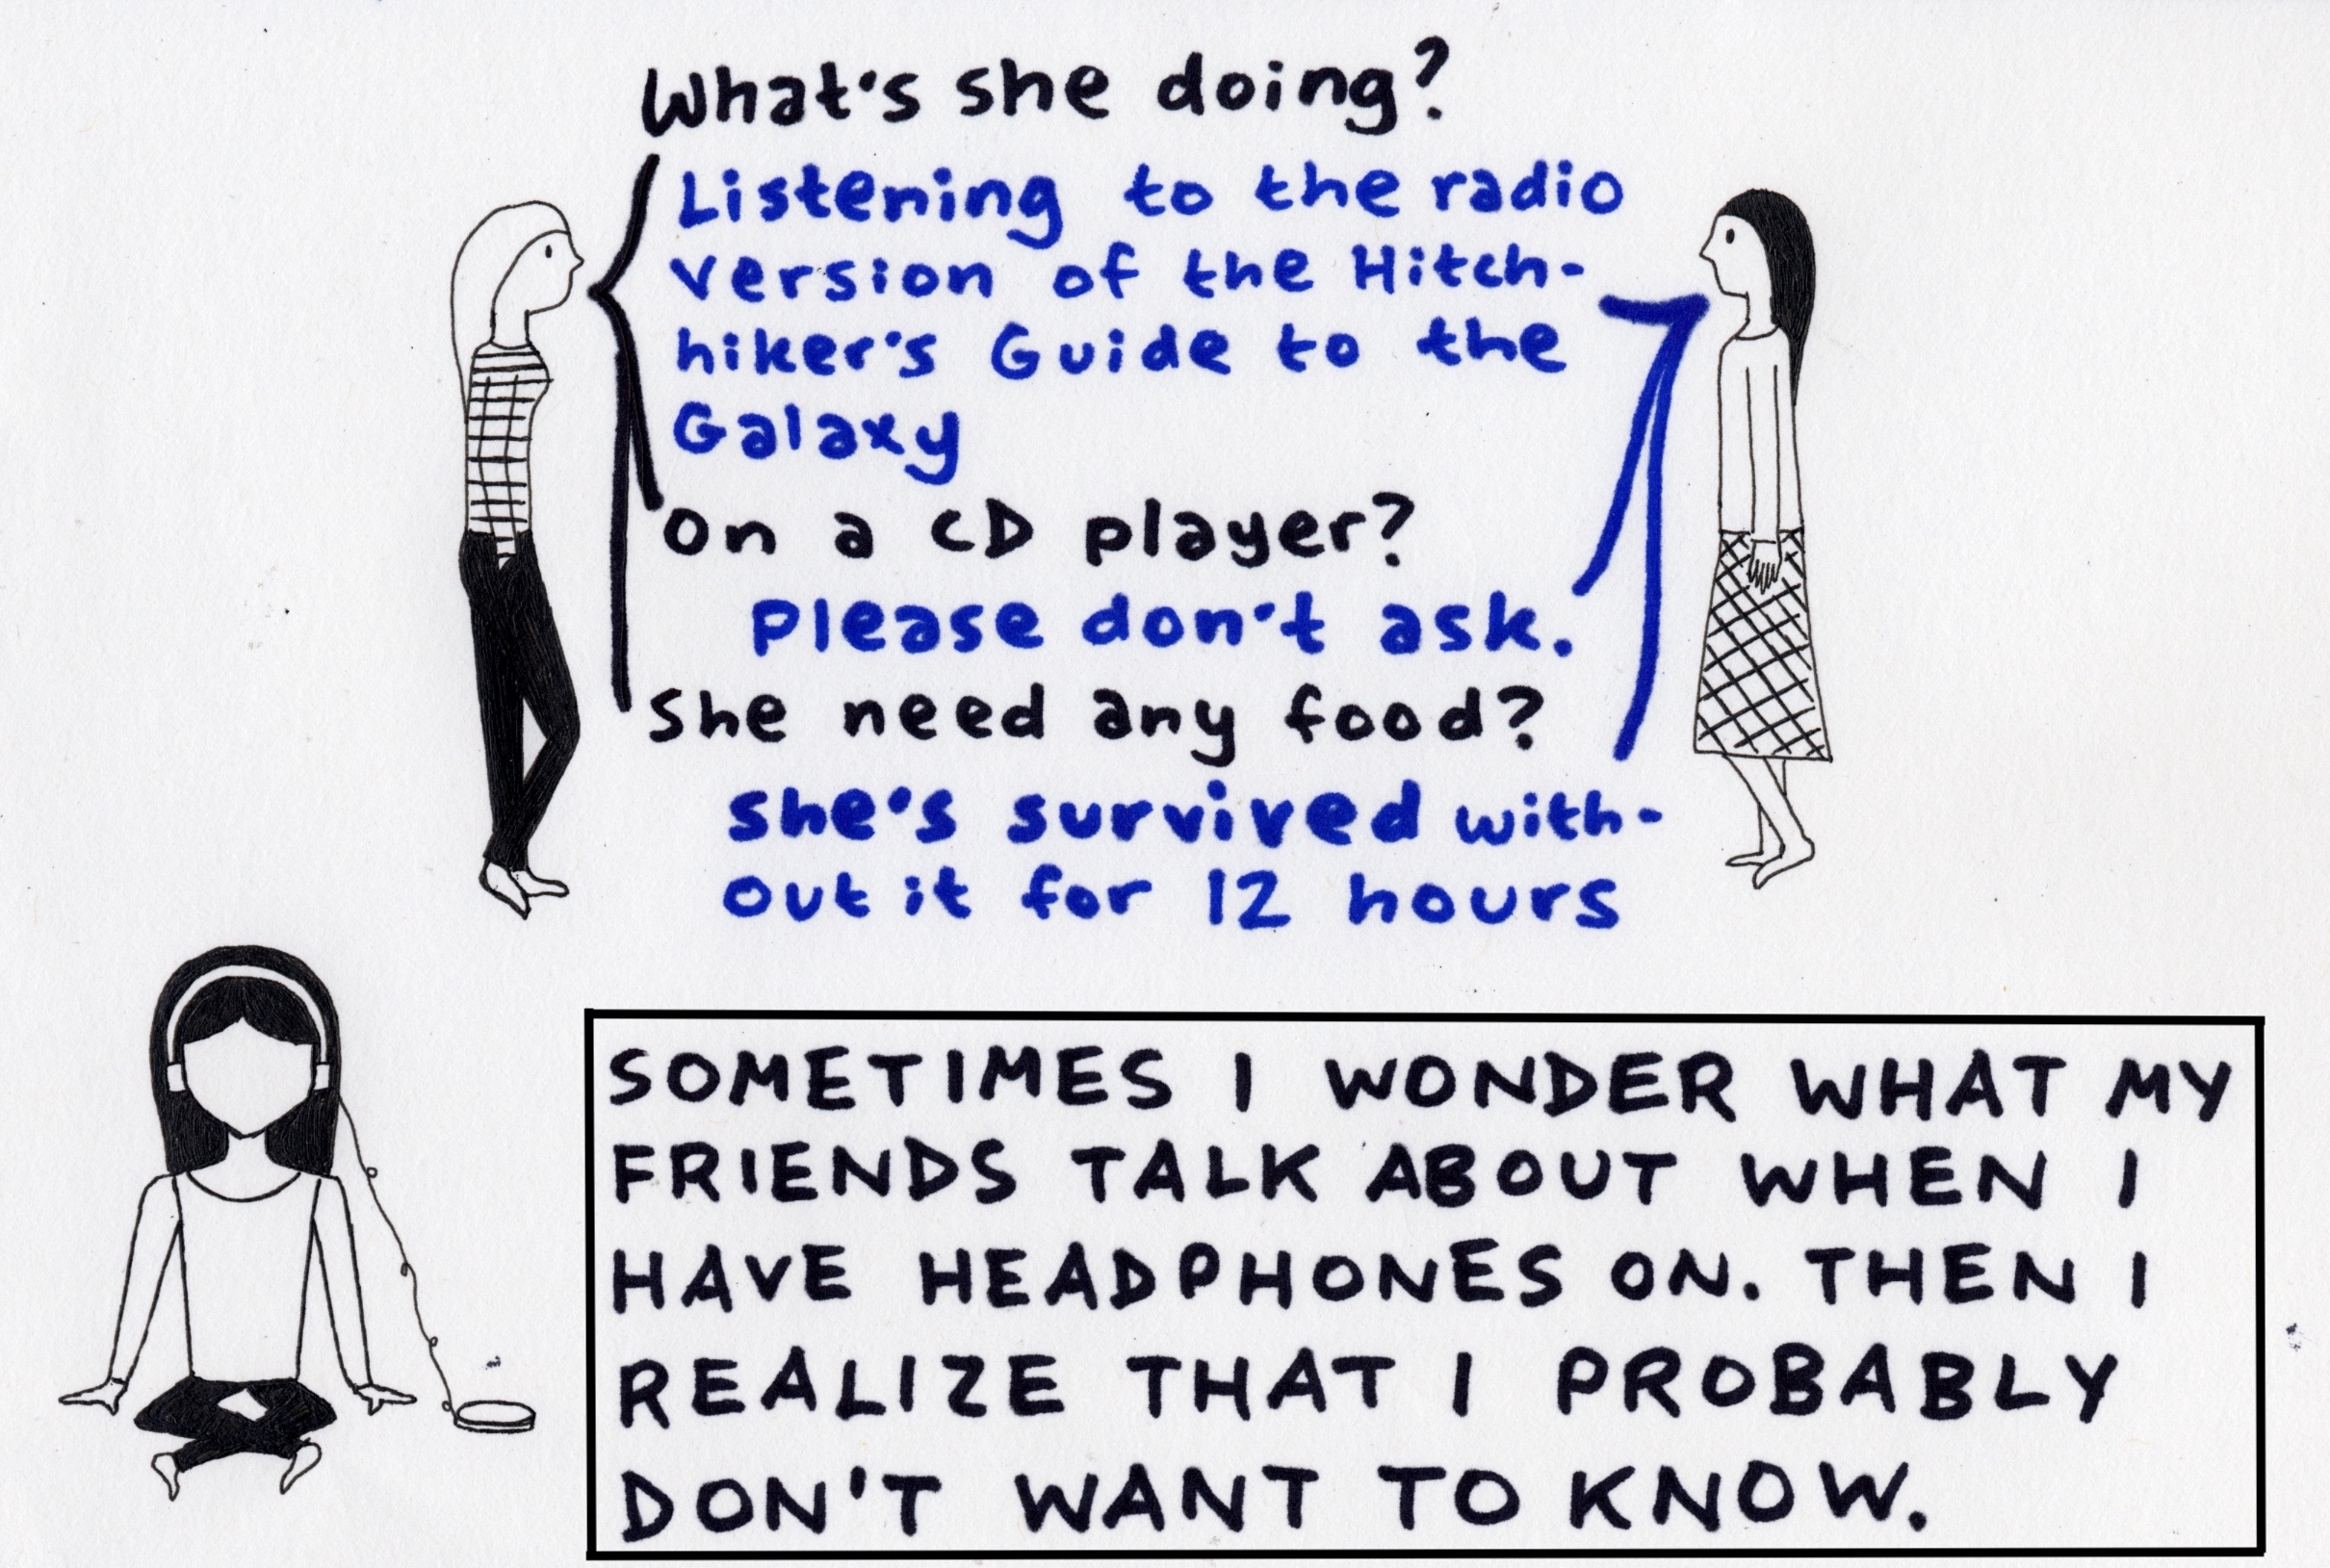 What's she doing?
Listening to the radio
version of the Hitch-
hiker's Guide to the
Galaxy
On a CD player?
Please don't ask.
She need any food?
She's survived with-
out it for 12 hours
SOMETIMES I WONDER WHAT MY
FRIENDS TALK ABOUT WHEN I
HAVE HEADPHONES ON. THEN I
REALIZE THAT I PROBABLY
DON'T WANT TO KNOW.